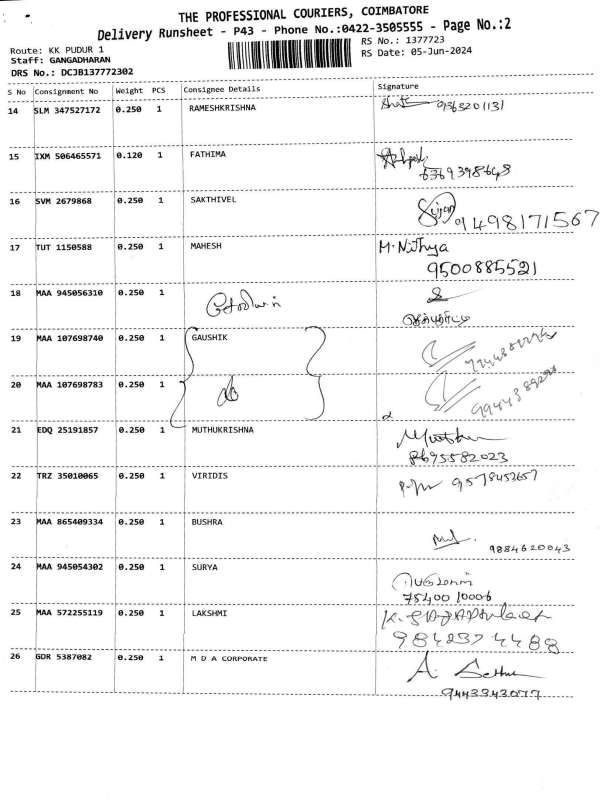 THE PROFESSIONAL COURIERS, COIMBATORE
Delivery Runsheet - P43 - Phone No.:0422-3505555 - Page No.:2
Route: KK PUDUR 1
RS No.: 1377723
Staff: GANGADHARAN
RS Date: 05-Jun-2024
DRS No.: DCJB137772302
S No Consignment No Weight PCS Consignee Details Signature
14 SLM 347527172 0.250 1 RAMESHKRISHNA
9363201131
15 IXM 506465571 0.120 1 FATHIMA
6369398648
16 SVM 2679868 0.250 1 SAKTHIVEL
9498171567
17 TUT 1150588 0.250 1 MAHESH M. Nithya
9500885521
18 MAA 945056310 0.250 1
19 MAA 107698740 0.250 1 GAUSHIK
20 MAA 107698783 0.250 1
21 EDQ 25191857 0.250 1 MUTHUKRISHNA
8695582023
22 TRZ 35010065 0.250 1 VIRIDIS
9578452657
23 MAA 865409334 0.250 1 BUSHRA
9884620043
24 MAA 945054302 0.250 1 SURYA
7540010006
25 MAA 572255119 0.250 1 LAKSHMI
9842374488
26 GDR 5387082 0.250 1 M D A CORPORATE
9443343077